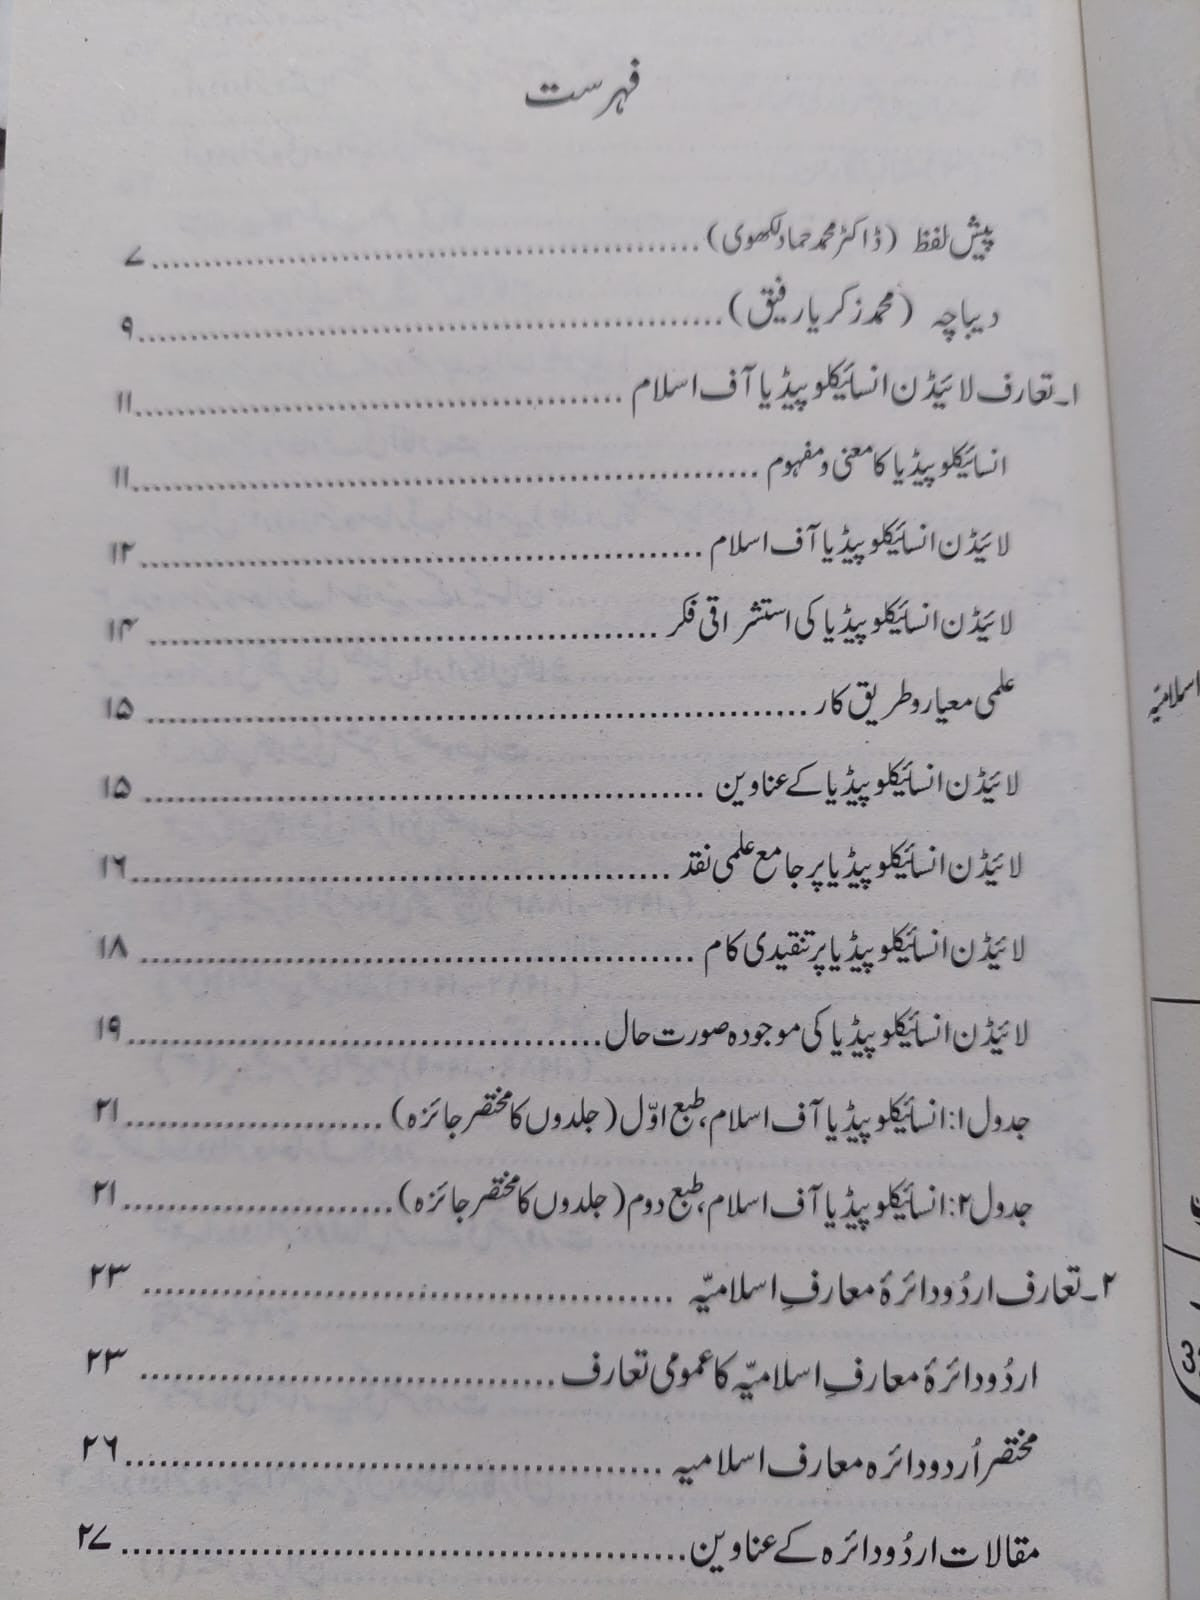 فہرست
پیش لفظ (ڈاکٹر محمد حماد لکھوی)........................................۷
دیباچہ (محمد زکریا رفیق)........................................۹
۱۔تعارف لائیڈن انسائیکلوپیڈیا آف اسلام........................................۱۱
انسائیکلوپیڈیا کا معنی و مفہوم........................................۱۱
لائیڈن انسائیکلوپیڈیا آف اسلام........................................۱۲
لائیڈن انسائیکلوپیڈیا کی استشراقی فکر........................................۱۴
علمی معیار و طریق کار........................................۱۵
لائیڈن انسائیکلوپیڈیا کے عناوین........................................۱۵
لائیڈن انسائیکلوپیڈیا پر جامع علمی نقد........................................۱۶
لائیڈن انسائیکلوپیڈیا پر تنقیدی کام........................................۱۸
لائیڈن انسائیکلوپیڈیا کی موجودہ صورت حال........................................۱۹
جدول ۱: انسائیکلوپیڈیا آف اسلام، طبع اوّل (جلدوں کا مختصر جائزہ)..............................۲۱
جدول ۲: انسائیکلوپیڈیا آف اسلام، طبع دوم (جلدوں کا مختصر جائزہ)..............................۲۱
۲۔تعارف اردُو دائرۂ معارفِ اسلامیّہ........................................۲۳
اردُو دائرۂ معارفِ اسلامیّہ کا عمومی تعارف........................................۲۳
مختصر اُردو دائرہ معارف اسلامیہ........................................۲۶
مقالات اردُو دائرہ کے عناوین........................................۲۷
اسلامیّہ